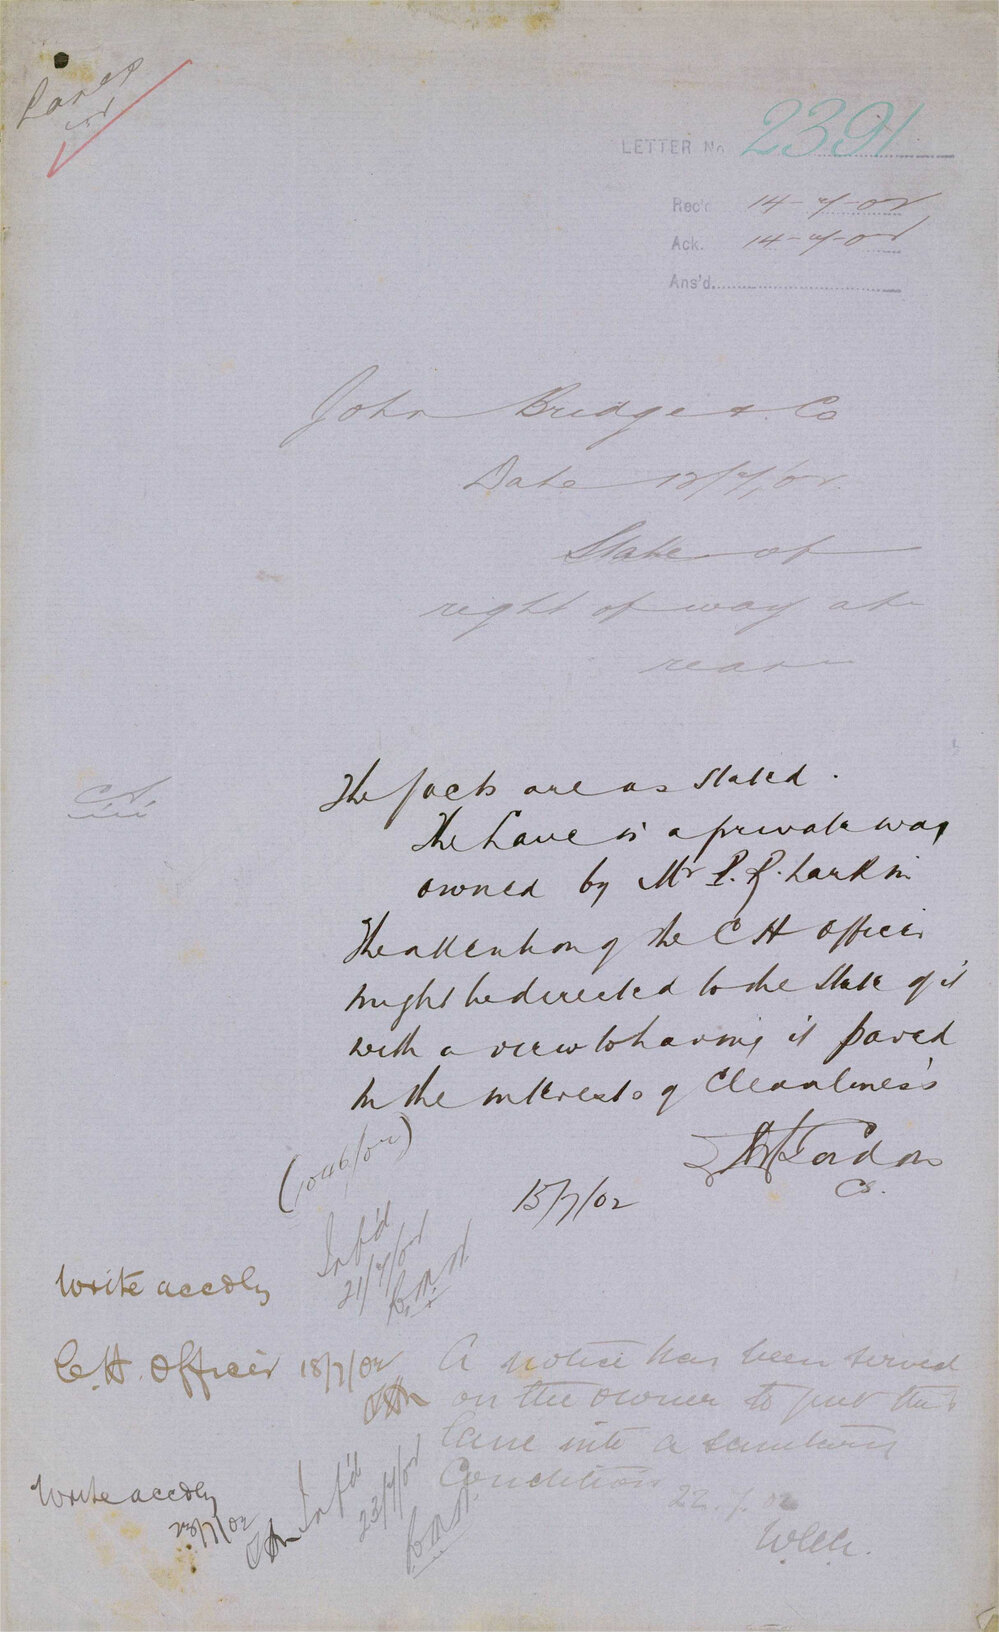 Lanes
LETTER No 2391
Rec'd 14-7-02
Ack. 14-7-02
Ans'd
John Bridge & Co
Date 12/7/02.
State of
right of way at
rear
CS
The facts are as stated.
The Lane is a private way
owned by Mr P. R. Larkin
The attention of the C H Officer
might be directed to the state of it
with a view to having it paved
in the interests of Cleanliness
Gordon
CS.
15/7/02
(1046/02)
Inf'd
21/7/02
Write accdly
C.H. Officer 18/7/02
A notice has been served
on the owner to put the
lane into a sanitary
Condition
22.7.02
W.G.G.
Inf'd
23/7/02
Write accdly
23/7/02